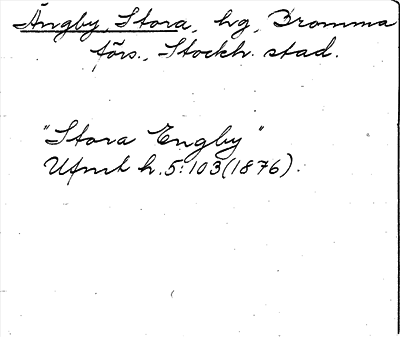 Ängby, Stora, hg, Bromma
förs., Stockh. stad.
"Stora Engby"
Ufmt h. 5:103 (1876).